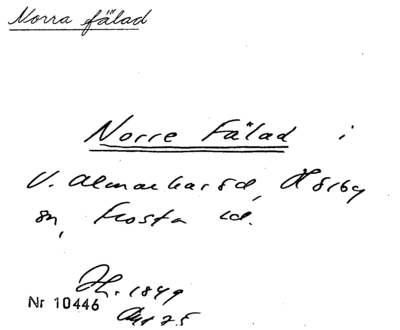 Norra fälad
Norre Fälad i
V. Almarharöd, Hörby
sn, Frosta hd.
H. 1849
Nr 10446
Akt 25